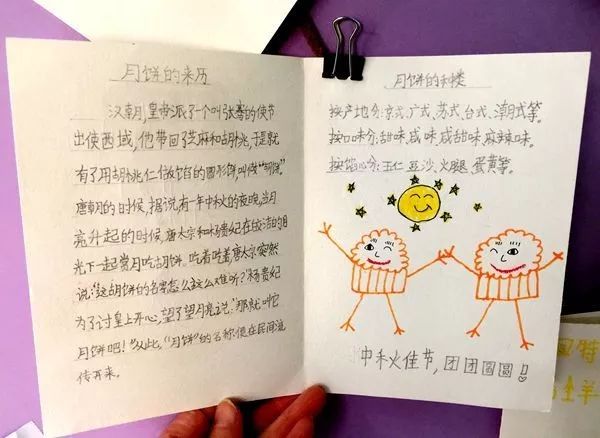 月饼的来历
汉朝,皇帝派了一个叫张骞的使节
出使西域,他带回了芝麻和胡桃,于是就
有了用胡桃仁做馅的圆形饼,叫做“胡饼”。
唐朝的时候,据说,有一年中秋的夜晚,当月
亮升起的时候,唐太宗和杨贵妃在皎洁的月
光下一起赏月吃胡饼。吃着吃着唐太宗突然
说:“这胡饼的名字怎么这么难听?”杨贵妃
为了讨皇上开心,望了望月亮说:“那就叫它
月饼吧!”从此,“月饼”的名称便在民间流
传开来。
月饼的种类
按产地分:京式、广式、苏式、台式、潮式等。
按口味分:甜味、咸味、咸甜味、麻辣味。
按馅心分:五仁、豆沙、火腿、蛋黄等。
中秋佳节,团团圆圆!